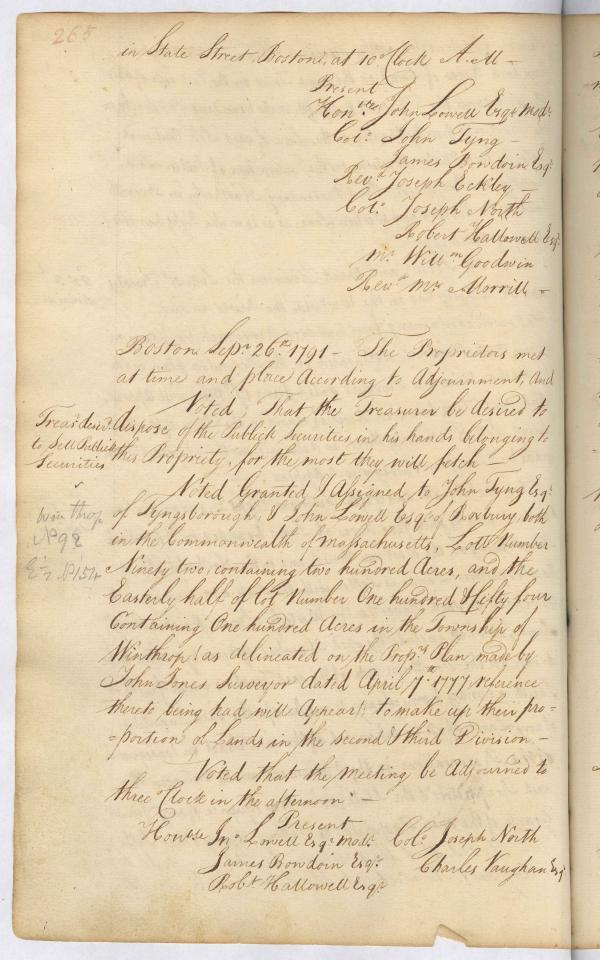 265
in State Street, Boston, at 10 oClock A.M -
Present
Honble John Lowell Esqr Modr
Colo John Tyng -
James Bowdoin Esqr
Revd Joseph Eckley -
Colo Joseph North
Robert Hallowell Esqr
Mr Willm Goodwin
Revd Mr Morrill -
Boston Sepr 26th 1791 - The Proprietors met
at time and place According to Adjournment, And
Voted, That the Treasurer be desired to
Treasr desird
to Sell Publick
Securities
dispose of the Publick Securities in his hands belonging to
this Propriety, for the most they will fetch -
Voted Granted & Assigned to John Tyng Esqr
of Tyngsborough, & John Lowell Esqr of Roxbury both
winthrop
No 92
E 1/2 No 154
in the Commonwealth of Massachusetts, Lott Number
Ninety two, containing two hundred Acres, and the
Easterly half of lot Number One hundred & fifty four
Containing One hundred Acres in the Township of
Winthrop (as delineated on the Proprs Plan made by
John Jones Surveyor dated April 7th 1777 reference
thereto being had will Appear) to make up their pro=
=portion of Lands in the second & third Division -
Voted that the Meeting be Adjourned to
three Clock in the afternoon -
Present
Honble Jno Lowell Esqr Modr
James Bowdoin Esqr
Robt Hallowell Esqr
Colo Joseph North
Charles Vaughan Esqr